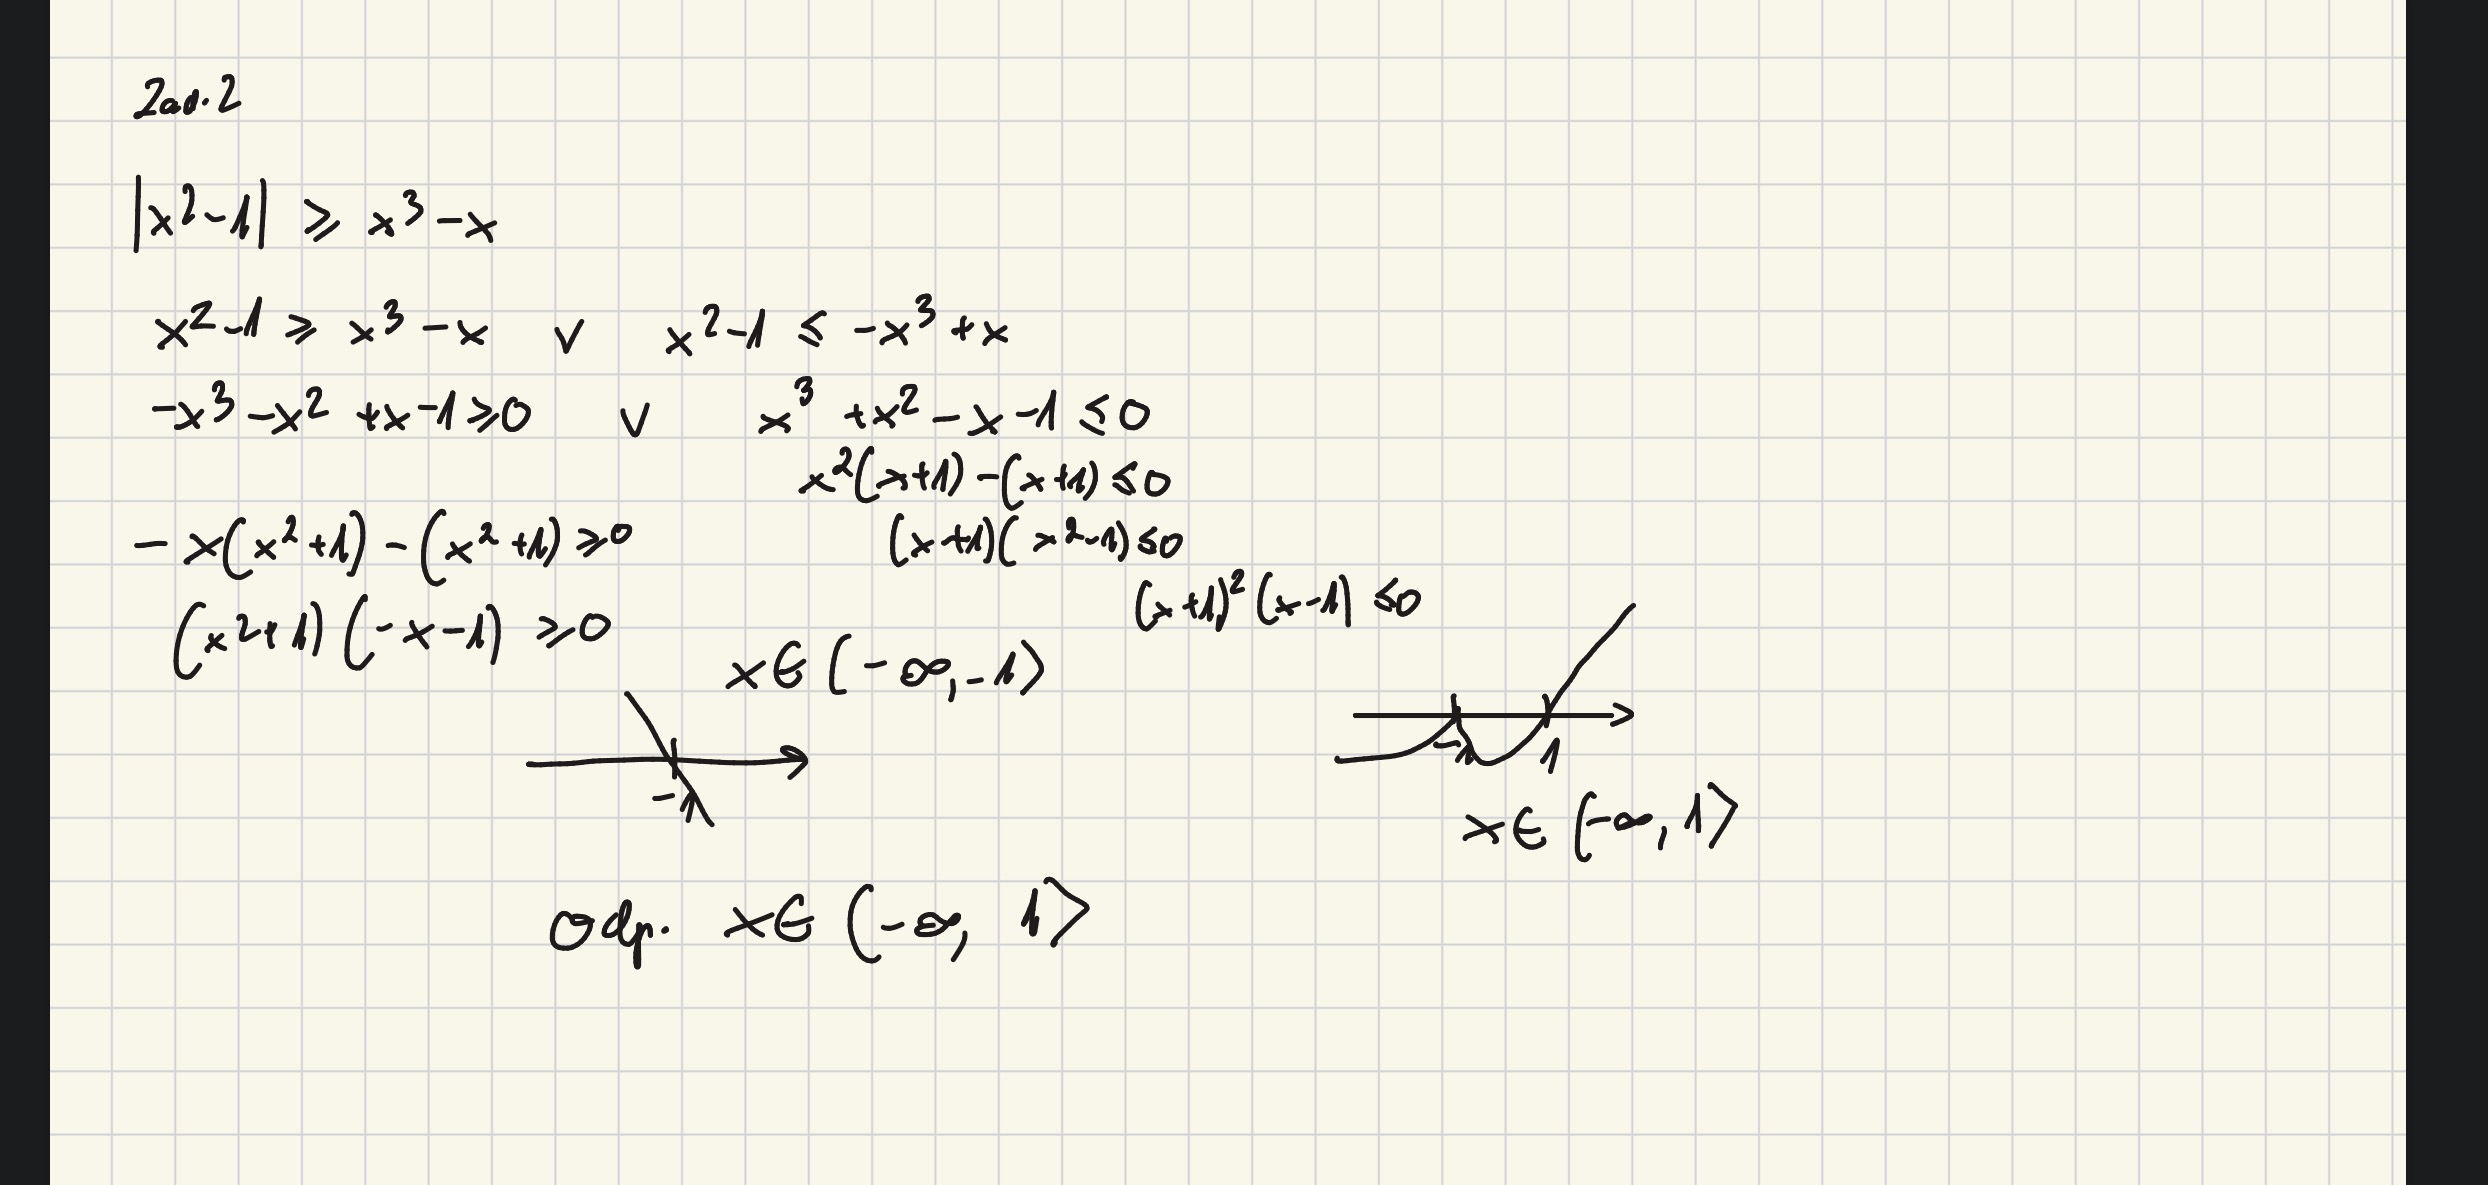 Zad. 2
|x²-1| ⩾ x³-x
x²-1 ⩾ x³-x ∨ x²-1 ⩽ -x³+x
-x³-x²+x-1⩾0 ∨ x³+x²-x-1⩽0
x²(x+1)-(x+1)⩽0
-x(x²+1)-(x²+1)⩾0 (x+1)(x²-1)⩽0
(x+1)²(x-1)⩽0
(x²+1)(-x-1)⩾0
x∈(-∞,-1⟩
-1
-1 1
x∈(-∞,1⟩
odp. x∈(-∞, 1⟩